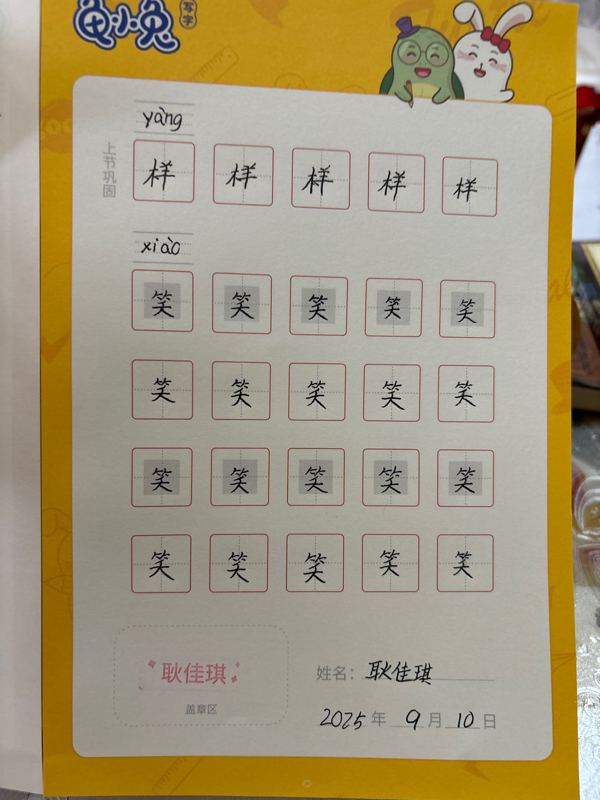 龟小兔写字
yàng
上节巩固
样 样 样 样 样
xiào
笑 笑 笑 笑 笑
笑 笑 笑 笑 笑
笑 笑 笑 笑 笑
笑 笑 笑 笑 笑
耿佳琪
盖章区
姓名：耿佳琪
2025年 9月 10日